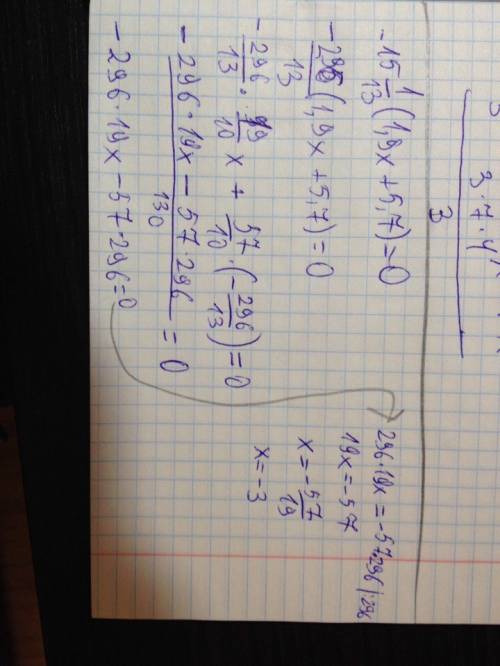 3 · 7 · 4
3
-15 1/13 (1,9x + 5,7) = 0
-296/13 (1,9x + 5,7) = 0
-296/13 · 19/10 x + 57/10 · (-296/13) = 0
(-296 · 19x - 57 · 296)/130 = 0
-296 · 19x - 57 · 296 = 0
296 · 19x = -57 · 296 | : 296
19x = -57
x = -57/19
x = -3